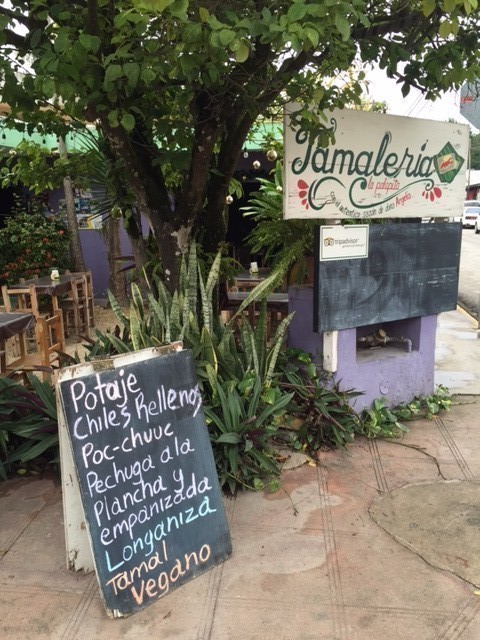 Tamaleria
la palapita
la autentica sazón de doña Angela
tripadvisor
Potaje
Chiles Rellenos
Poc-chuuc
Pechuga a la
Plancha y
empanizada
Longaniza
Tamal
Vegano